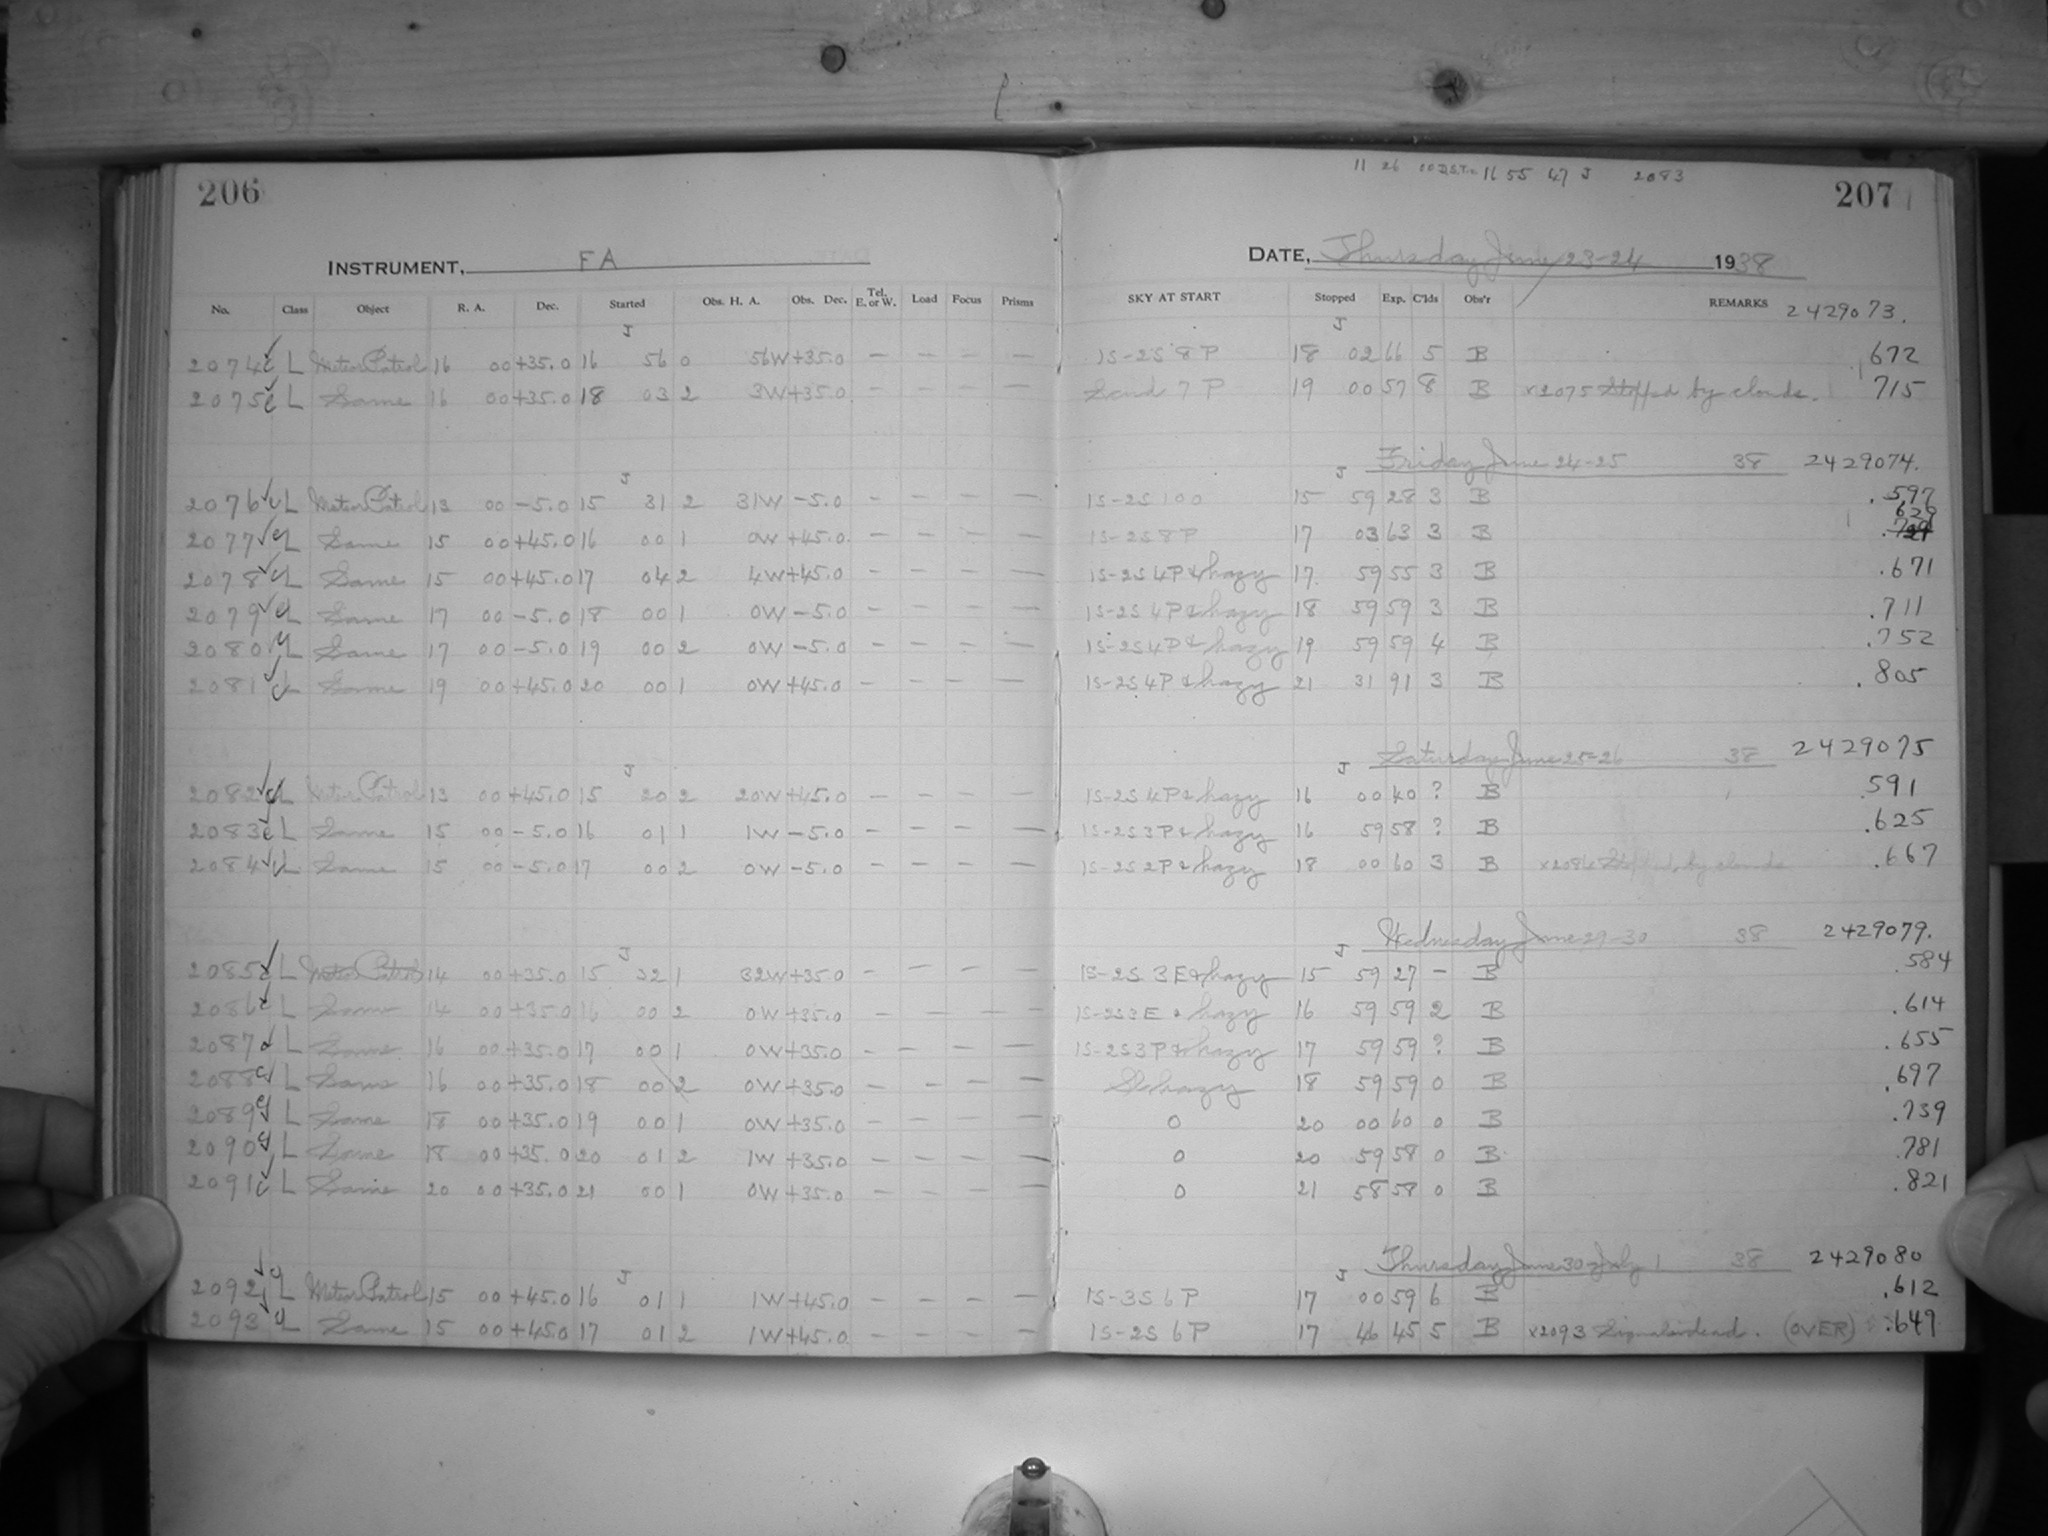 206
INSTRUMENT, FA
No. Class Object R. A. Dec. Started Obs. H. A. Obs. Dec. Tel. E. or W. Load Focus Prisms
J
2074 L Meteor Patrol 16 00 +35.0 16 56 0 56W +35.0 — — — —
2075 L Same 16 00 +35.0 18 03 2 3W +35.0 — — — —
J
2076 L Meteor Patrol 13 00 -5.0 15 31 2 31W -5.0 — — — —
2077 L Same 15 00 +45.0 16 00 1 0W +45.0 — — — —
2078 L Same 15 00 +45.0 17 04 2 4W +45.0 — — — —
2079 L Same 17 00 -5.0 18 00 1 0W -5.0 — — — —
2080 L Same 17 00 -5.0 19 00 2 0W -5.0 — — — —
2081 L Same 19 00 +45.0 20 00 1 0W +45.0 — — — —
J
2082 L Meteor Patrol 13 00 +45.0 15 20 2 20W +45.0 — — — —
2083 L Same 15 00 -5.0 16 01 1 1W -5.0 — — — —
2084 L Same 15 00 -5.0 17 00 2 0W -5.0 — — — —
J
2085 L Meteor Patrol 14 00 +35.0 15 32 1 32W +35.0 — — — —
2086 L Same 14 00 +35.0 16 00 2 0W +35.0 — — — —
2087 L Same 16 00 +35.0 17 00 1 0W +35.0 — — — —
2088 L Same 16 00 +35.0 18 00 2 0W +35.0 — — — —
2089 L Same 18 00 +35.0 19 00 1 0W +35.0 — — — —
2090 L Same 18 00 +35.0 20 01 2 1W +35.0 — — — —
2091 L Same 20 00 +35.0 21 00 1 0W +35.0 — — — —
J
2092 L Meteor Patrol 15 00 +45.0 16 01 1 1W +45.0 — — — —
2093 L Same 15 00 +45.0 17 01 2 1W +45.0 — — — —
11 26 00 16 55 47 J 2083
207
DATE, Thursday June 23-24 1938
SKY AT START Stopped Exp. C'lds Obs'r REMARKS 2429073.
J
1S-2S 8P 18 02 66 5 B 672
7P 19 00 57 8 B x2075 Stopped by clouds. 715
J Friday June 24-25 38 2429074.
1S-2S 100 15 59 28 3 B .597
1S-2S 8P 17 03 63 3 B 629
1S-2S 4P & hazy 17 59 55 3 B .671
1S-2S 4P & hazy 18 59 59 3 B .711
1S-2S 4P & hazy 19 59 59 4 B .752
1S-2S 4P & hazy 21 31 91 3 B .805
J Saturday June 25-26 38 2429075
1S-2S 4P & hazy 16 00 40 ? B .591
1S-2S 3P & hazy 16 59 58 ? B .625
1S-2S 2P & hazy 18 00 60 3 B x2084 Stopped by clouds .667
J Wednesday June 29-30 38 2429079.
1S-2S 3E & hazy 15 59 27 — B .584
1S-2S 3E & hazy 16 59 59 2 B .614
1S-2S 3P & hazy 17 59 59 ? B .655
hazy 18 59 59 0 B .697
0 20 00 60 0 B .739
0 20 59 58 0 B .781
0 21 58 58 0 B .821
J Thursday June 30-July 1 38 2429080
1S-3S 6P 17 00 59 6 B .612
1S-2S 6P 17 46 45 5 B x2093 (OVER) .649